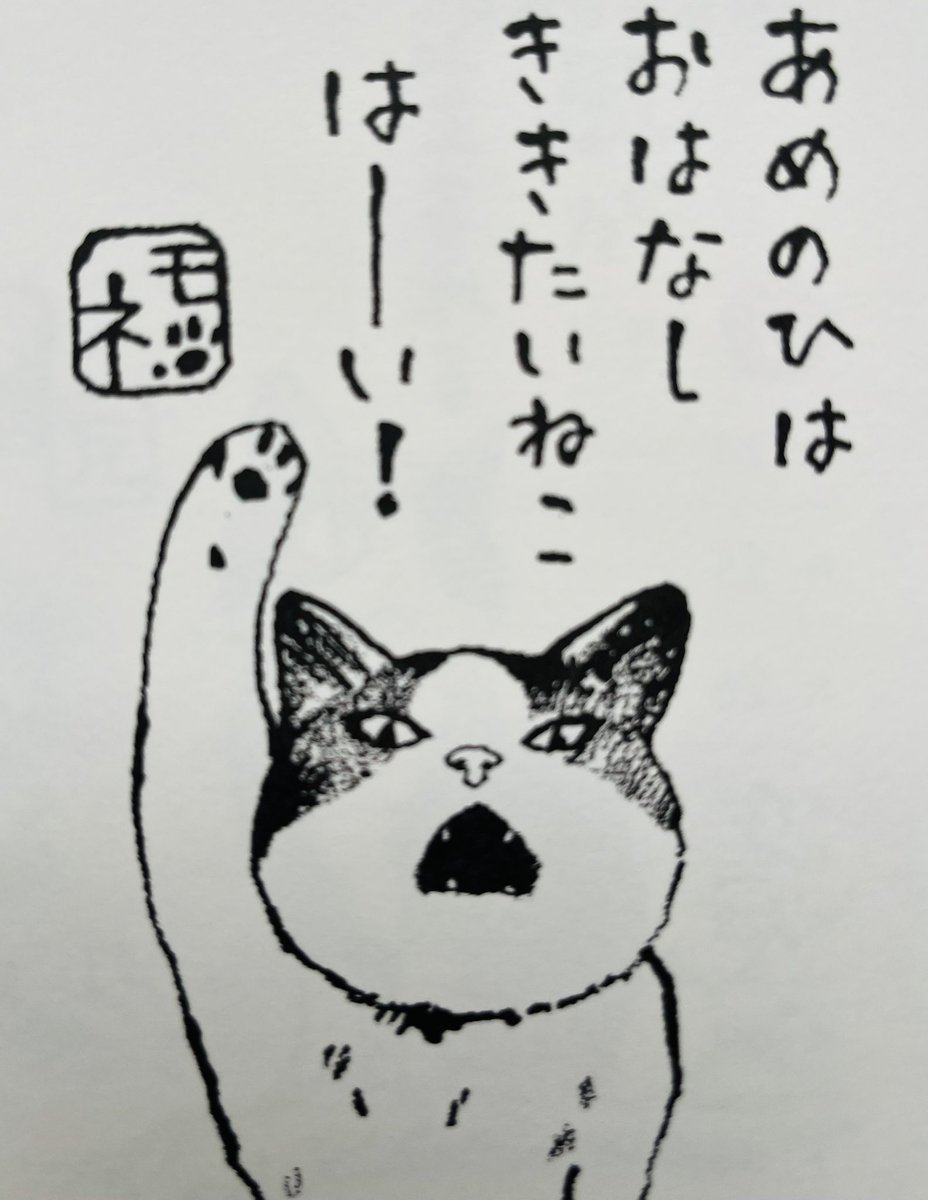 あめのひは
おはなし
ききたいねこ
はーい!
モネ